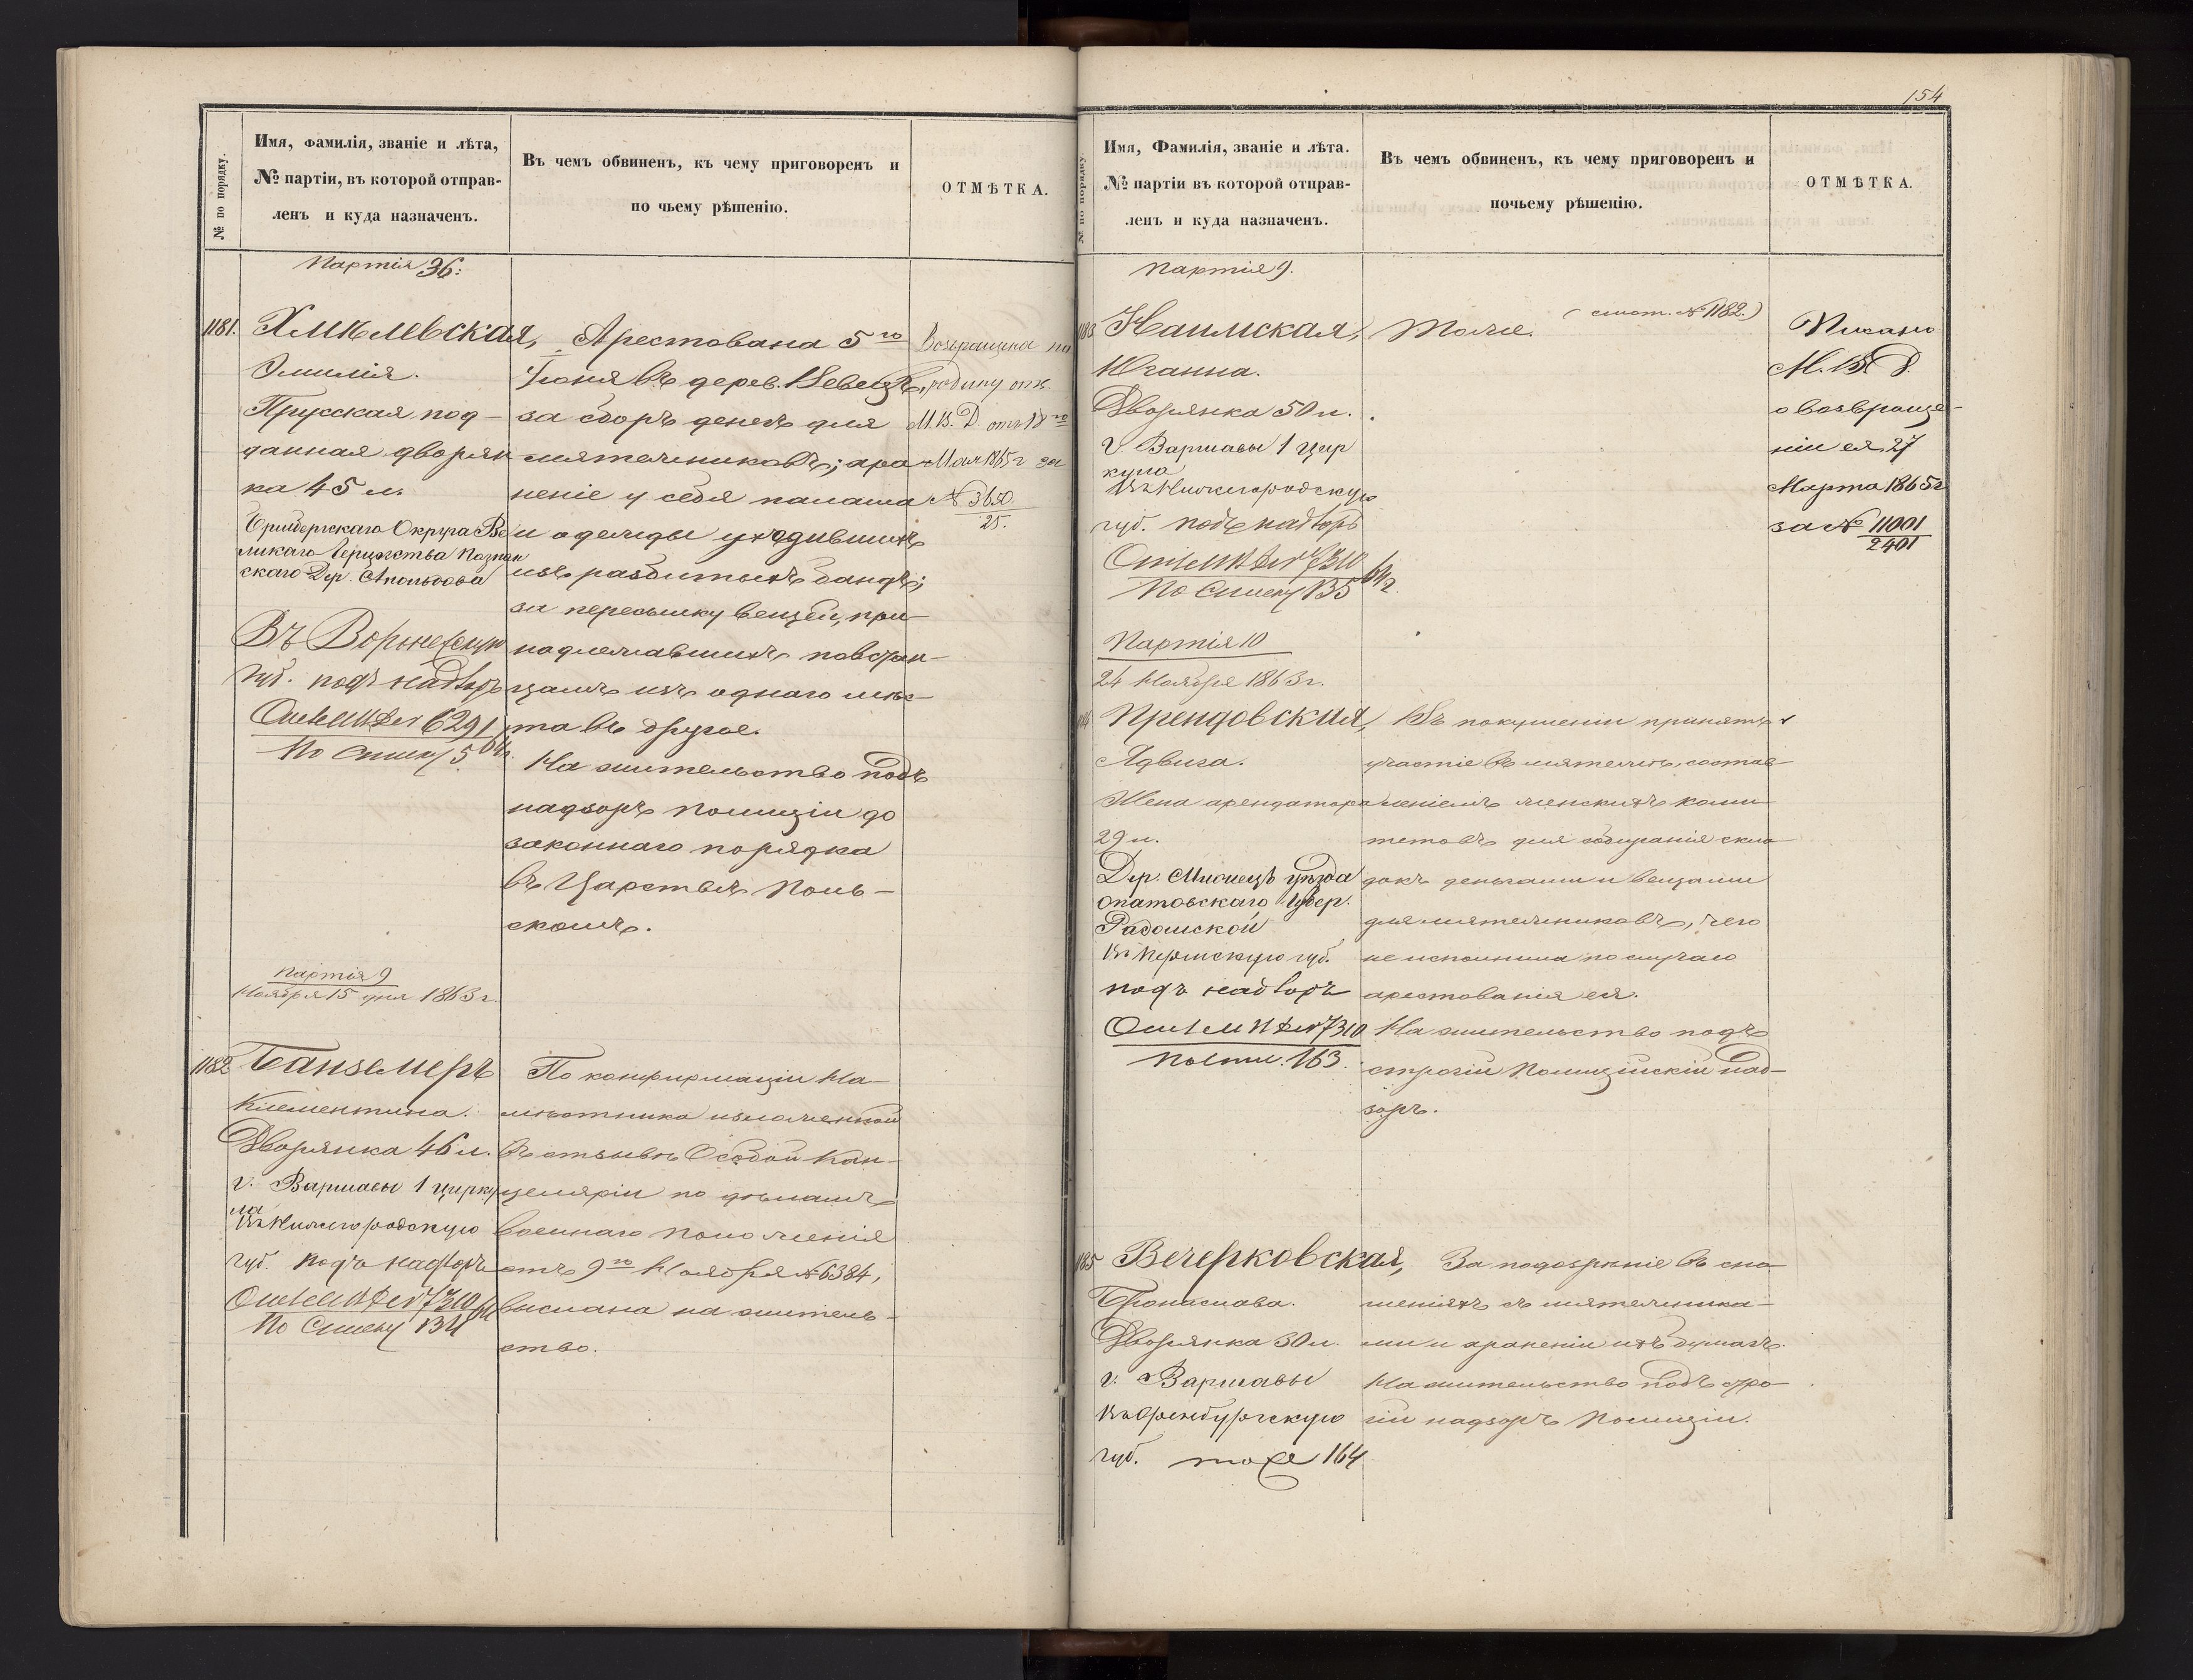 № по порядку.
Имя, фамилія, званіе и лѣта,
№ партіи, въ которой отправ-
ленъ и куда назначенъ.
Въ чемъ обвиненъ, къ чему приговоренъ и
по чьему рѣшенію.
ОТМѢТКА.
Партія 36:
1181.
Хмѣлевская,
Эмилія.
Прусская под-
данная дворян
ка 45 л.
Округа Ве
ликаго Герцогства Познан
скаго Дер.
Въ Воронежскую
губ. подъ надзоръ
6291
По списку 5
Арестована 5го
Іюня въ дерев.
за сборъ денегъ для
мятежниковъ; хра
неніе у себя палаша
и одежды уходившихъ
изъ разбитыхъ бандъ;
за пересылку вещей, при-
надлежавшихъ повстан-
цамъ изъ однаго мѣс-
та въ другое.
На жительство подъ
надзоръ Полиціи до
законнаго порядка
въ Царствѣ Поль-
скомъ.
Возвращена на
родину отн.
М. В. Д. отъ 18го
Мая 1865 г за
№ 3650
25.
Партія 9
Ноября 15 дня 1863 г.
1182
Банземеръ
Клементина.
Дворянка 46 л.
г. Варшавы 1 цирку
ла
Въ Нижегородскую
губ. подъ надзоръ
7310
По списку 134
По конфирмаціи На-
мѣстника изложенной
въ отзывѣ Особой Кан-
целяріи по дѣламъ
военнаго положенія
отъ 9го Ноября № 6384,
выслана на житель-
ство.
154
№ по порядку.
Имя, Фамилія, званіе и лѣта.
№ партіи въ которой отправ-
ленъ и куда назначенъ.
Въ чемъ обвиненъ, къ чему приговоренъ и
почьему рѣшенію.
ОТМѢТКА.
Партія 9.
1183
Наимская,
Юганна.
Дворянка 50 л.
г. Варшавы 1 цир
кула
Въ Нижегородскую
губ. подъ надзоръ
7310
По списку 135
Тоже.
(смот. № 1182.)
Писано
М. В. Д.
о возвраще-
ніи ея 27
Марта 1865 г
за № 11001
2401
Партія 10
24 Ноября 1863 г.
Прендовская,
Ядвига.
Жена арендатора
29 л.
Дер. уѣзда
Опатовскаго Губер.
Радомской
Въ Пермскую губ.
подъ надзоръ
7310
По спи. 163.
Въ покушеніи принять
участіе въ мятежѣ, состав-
леніемъ женскихъ коми-
тетовъ для собиранія скла
докъ деньгами и вещами
для мятежниковъ, чего
не исполнила по случаю
арестованія ея.
На жительство подъ
строгій Полицейскій над-
зоръ.
1185
Вечерковская,
Бронислава.
Дворянка 30 л.
г. Варшавы
Въ Оренбургскую
губ. тоже 164
За подозрѣніе въ сно
шеніяхъ съ мятежника-
ми и храненіи ихъ бумагъ.
На жительство подъ стро-
гій надзоръ Полиціи.